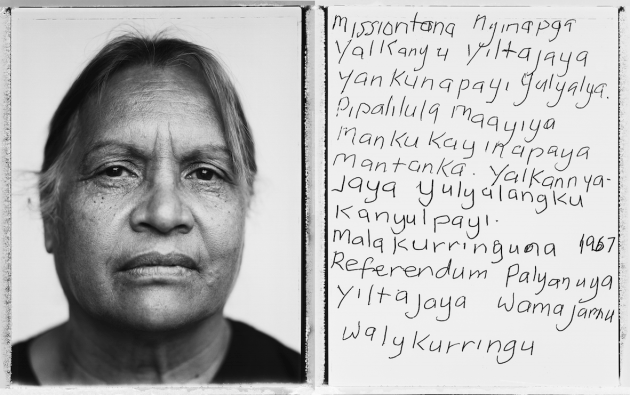 Missiontana Nyinapga
Yalkanyu yiltajaya
yankunapayi yulyalya.
Pipalilula maayiya
manku kayinapaya
mantanka. Yalkannya-
jaya yulyulangku
kanyulpayi.
Mala kurringuna 1967
Referendum Palyanuya
yiltajaya wamajarnu
walykurringu